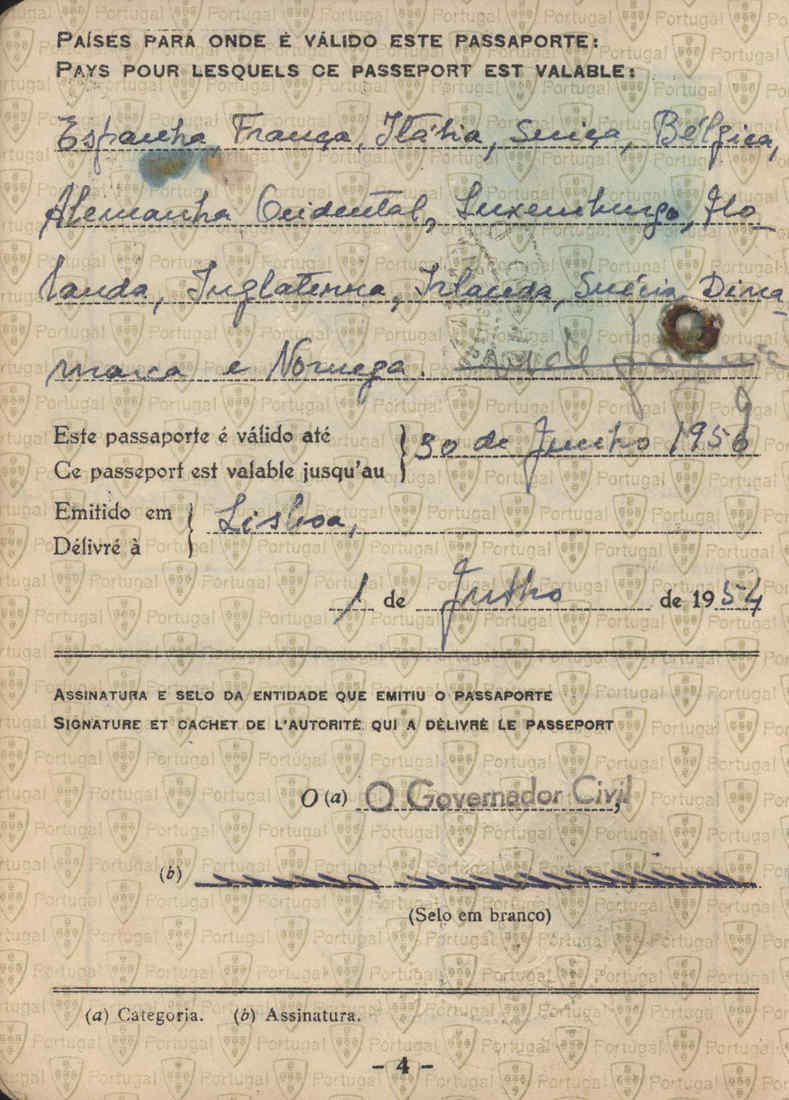 PAÍSES PARA ONDE É VÁLIDO ESTE PASSAPORTE:
PAYS POUR LESQUELS CE PASSEPORT EST VALABLE:
Espanha, França, Itália, Suiça, Bélgica,
Alemanha Ocidental, Luxemburgo, Ho-
landa, Inglaterra, Irlanda, Suécia, Dina-
marca e Noruega.
Este passaporte é válido até
Ce passeport est valable jusqu'au
30 de Junho 1956
Emitido em
Délivré à
Lisboa,
1 de Julho de 1954
ASSINATURA E SELO DA ENTIDADE QUE EMITIU O PASSAPORTE
SIGNATURE ET CACHET DE L'AUTORITÉ QUI A DÉLIVRÉ LE PASSEPORT
O (a) O Governador Civil,
(b)
(Selo em branco)
(a) Categoria. (b) Assinatura.
- 4 -